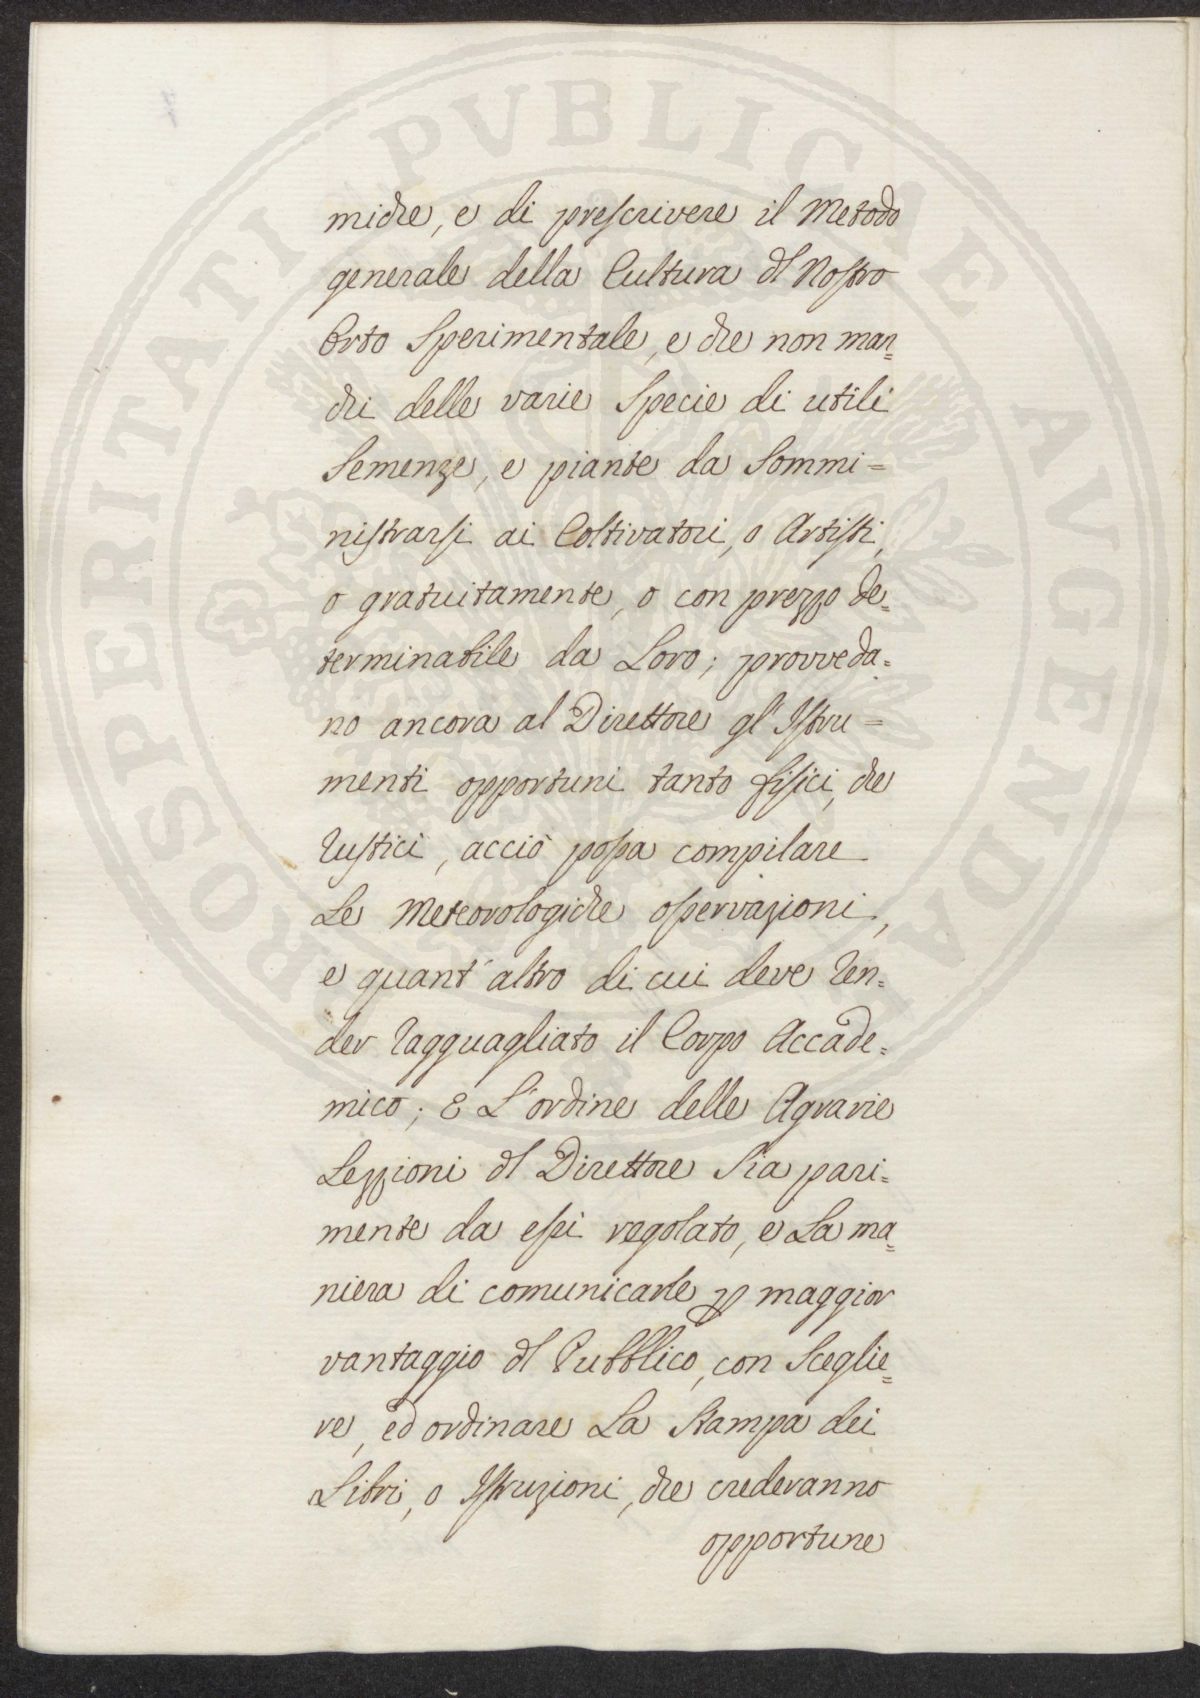 PROSPERITATI PVBLICAE AVGENDAE
miche, e di prescrivere il Metodo
generale della Cultura dl Nostro
Orto Sperimentale, e che non man=
chi delle varie Specie di utili
Semenze, e piante da Sommi=
nistrarsi ai Coltivatori, o Artisti,
o gratuitamente, o con prezzo de=
terminabile da Loro; provveda=
no ancora al Direttore gl'Istru=
menti opportuni tanto fisici, che
rustici, acciò possa compilare
Le Meteorologiche osservazioni,
e quant'altro di cui deve ren=
der ragguagliato il Corpo Accade=
mico; E L'ordine delle Agrarie
Lezzioni dl Direttore Sia pari=
mente da essi regolato, e La ma=
niera di comunicarle p maggior
vantaggio dl Pubblico, con Sceglie=
re, ed ordinare La Stampa dei
Libri, o Istruzioni, che crederanno
opportune